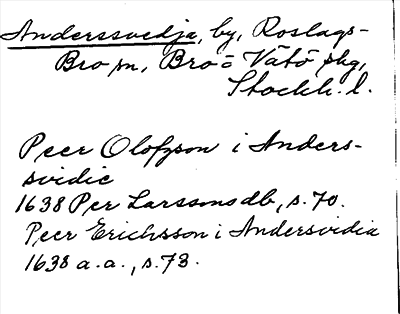 Anderssvedja, by, Roslags-
Bro sn, Bro o Vätö skg,
Stockh. l.
Peer Olofsson i Anders-
svidie
1638 Per Larssons db, s. 70.
Peer Erichsson i Andersvidia
1638 a.a., s. 73.